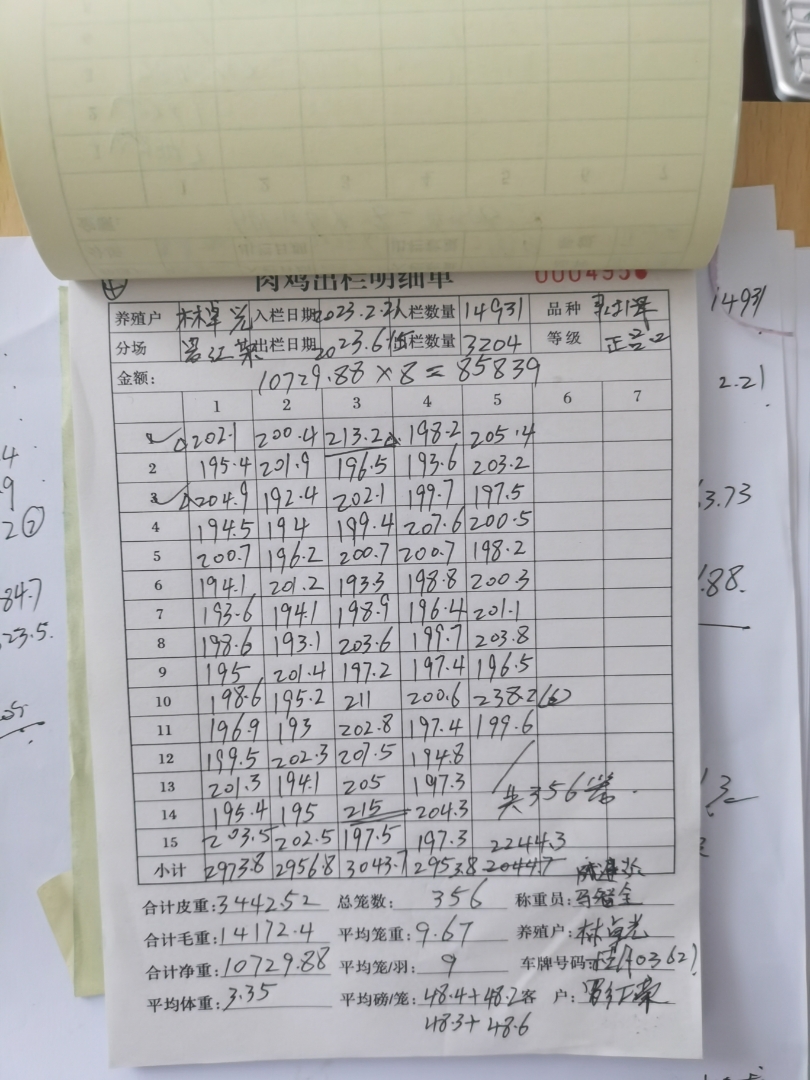 肉鸡出栏明细单 000495
养殖户 林卓光 入栏日期 2023.2.21 入栏数量 14931 品种
分场 出栏日期 2023.6 出栏数量 3204 等级 正
金额: 10729.88 × 8 = 85839
1 2 3 4 5 6 7
202.1 200.4 213.2 198.2 205.4
2 195.4 201.9 196.5 193.6 203.2
3 204.9 192.4 202.1 199.7 197.5
4 194.5 194 199.4 207.6 200.5
5 200.7 196.2 200.7 200.7 198.2
6 194.1 201.2 193.3 198.8 200.3
7 193.6 194.1 198.9 196.4 201.1
8 198.6 193.1 203.6 199.7 203.8
9 195 201.4 197.2 197.4 196.5
10 198.6 195.2 211 200.6 238.2 (6)
11 196.9 193 202.8 197.4 199.6
12 199.5 202.3 207.5 194.8
13 201.3 194.1 205 197.3 共356笼.
14 195.4 195 215 204.3
15 203.5 202.5 197.5 197.3 2244.3
小计 2973.8 2956.8 3043.7 2953.8 2044.7
合计皮重: 3442.52 总笼数: 356 称重员:
合计毛重: 14172.4 平均笼重: 9.67 养殖户: 林卓光
合计净重: 10729.88 平均笼/羽: 9 车牌号码:
平均体重: 3.35 平均磅/笼: 48.4+48.2 客 户:
48.3+48.6
14931
2.21
3.73
.88.
4
9
2②
84.7
23.5.